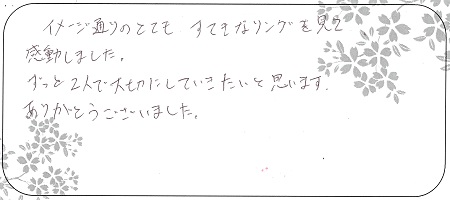 イメージ通りのとても すてきなリングを見て
感動しました。
ずっと2人で大切にしていきたいと思います.
ありがとうございました。